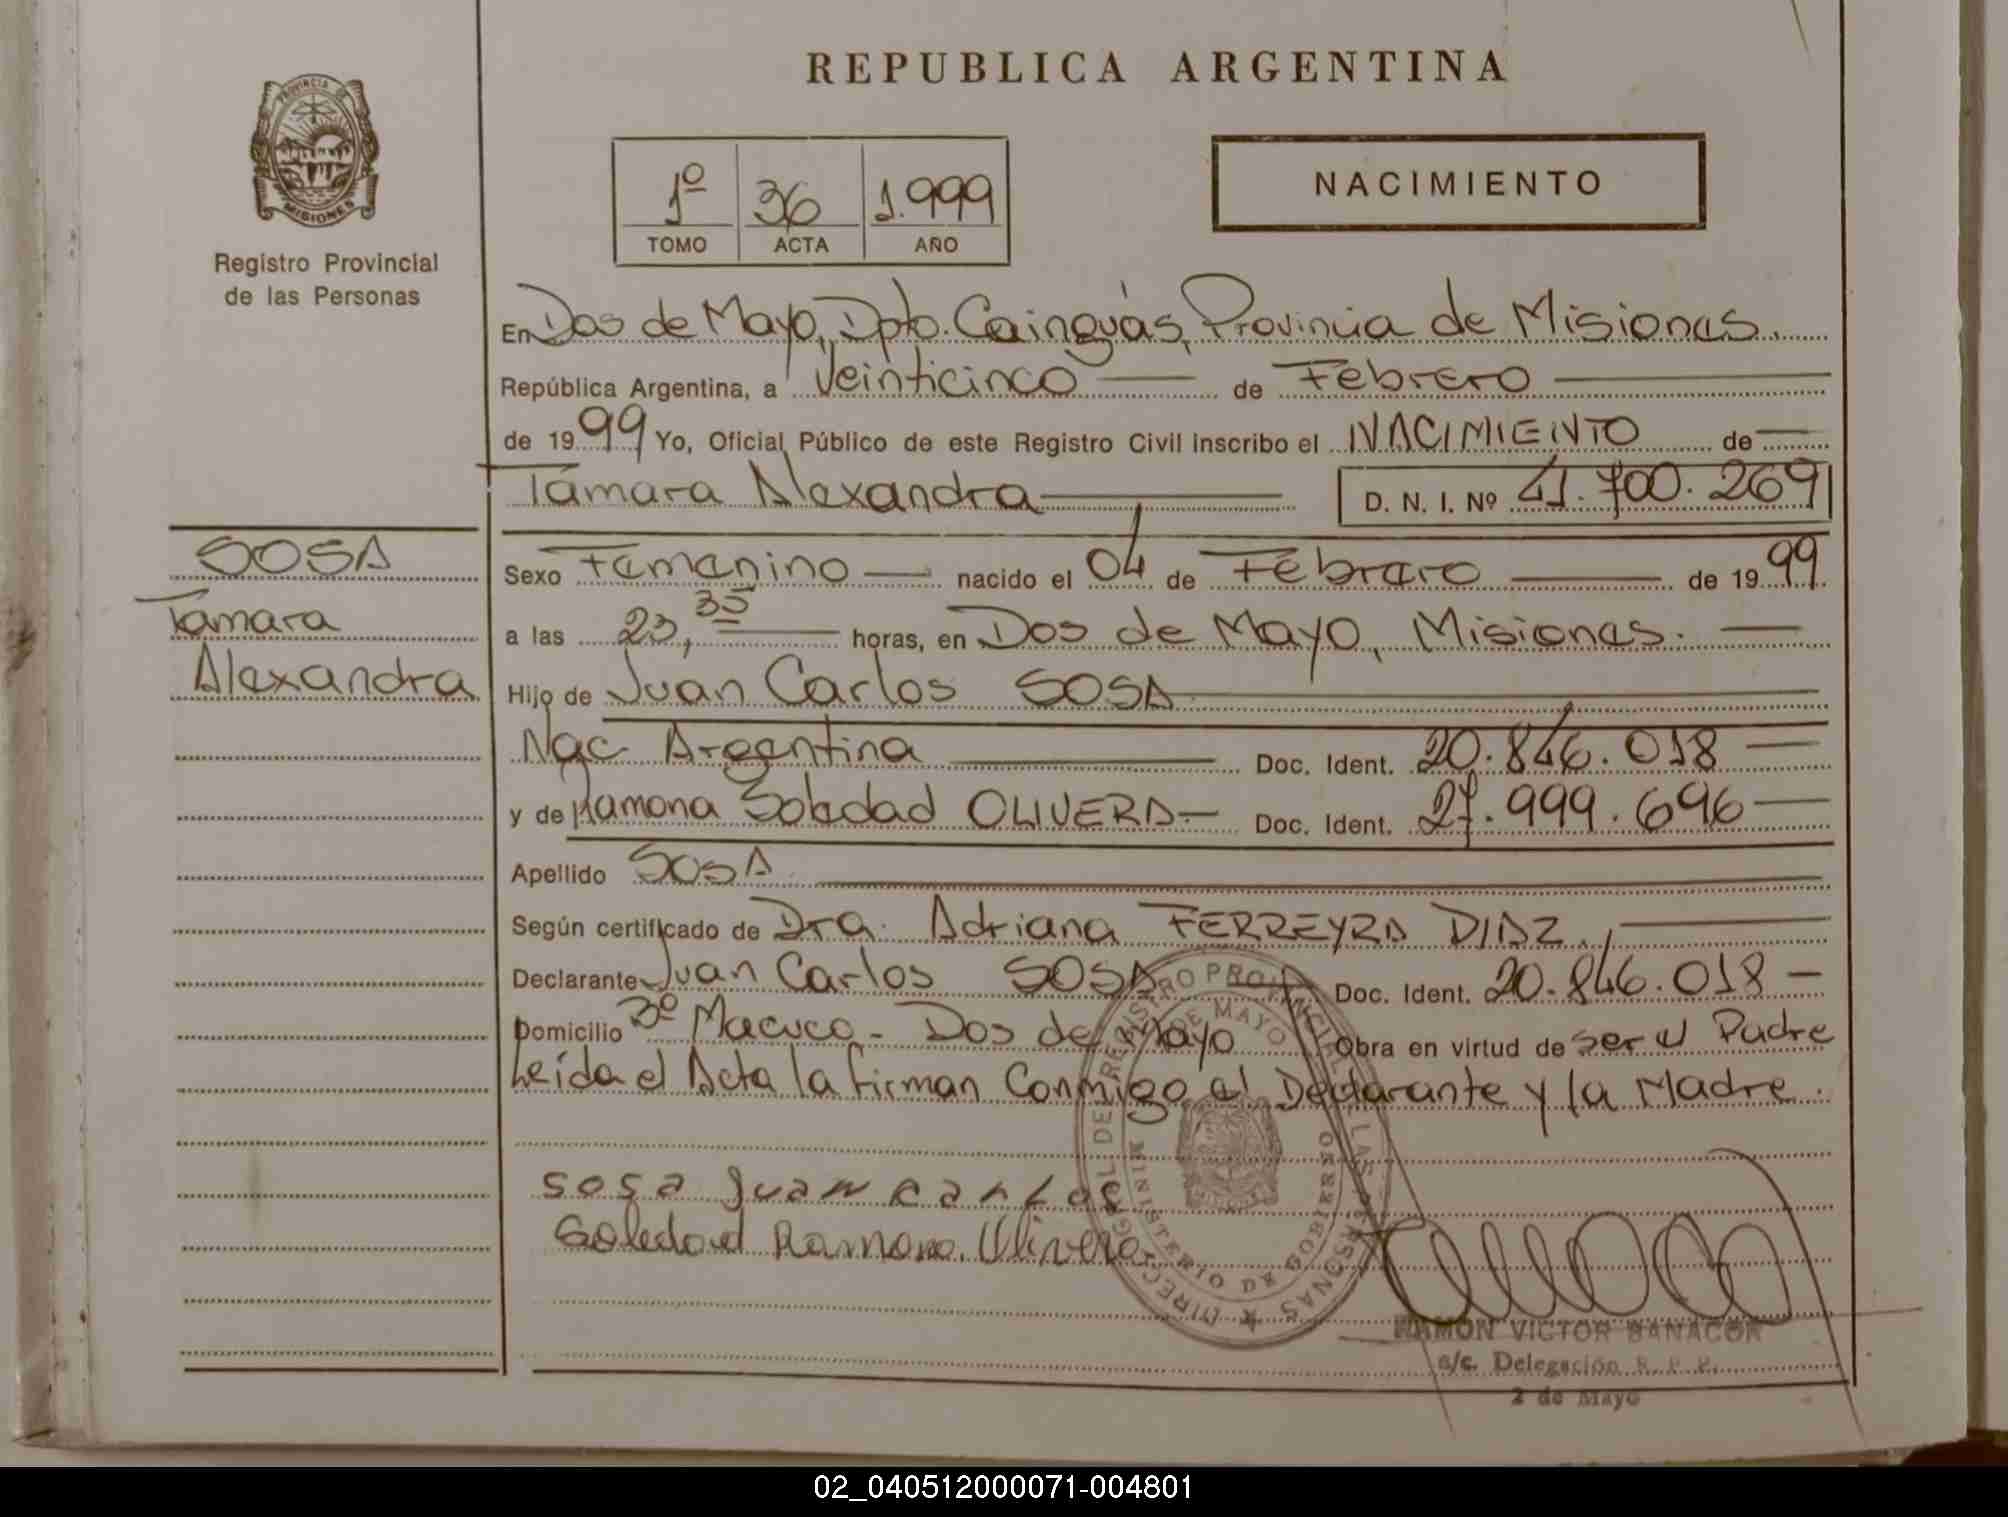 REPUBLICA ARGENTINA
PROVINCIA DE
MISIONES
Registro Provincial
de las Personas
1º 36 1.999
TOMO ACTA AÑO
NACIMIENTO
En Dos de Mayo, Dpto. Cainguás, Provincia de Misiones.
República Argentina, a Veinticinco de Febrero
de 1999 Yo, Oficial Público de este Registro Civil inscribo el NACIMIENTO de
Támara Alexandra D. N. I. Nº 41.700.269
SOSA
Tamara
Alexandra
Sexo Femenino nacido el 04 de Febrero de 1999
a las 23,35 horas, en Dos de Mayo, Misiones.
Hijo de Juan Carlos SOSA
Nac Argentina Doc. Ident. 20.846.018
y de Ramona Soledad OLIVERA Doc. Ident. 27.999.696
Apellido SOSA
Según certificado de Dra. Adriana FERREYRA DIAZ.
Declarante Juan Carlos SOSA Doc. Ident. 20.846.018
Domicilio 3º Macuco - Dos de Mayo Obra en virtud de ser el Padre
Leída el Acta la firman Conmigo el Declarante y la Madre.
sosa Juan Carlos
Soledad Ramona Olivera
DIRECC. GRAL DEL REGISTRO PROVINCIAL DE LAS PERSONAS
DE MAYO
MINISTERIO DE GOBIERNO
RAMON VICTOR BANACOR
a/c. Delegación R. P. P.
2 de Mayo
02_040512000071-004801